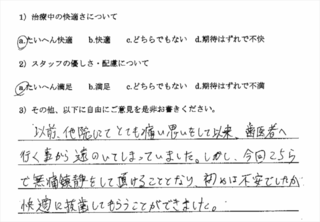 1）治療中の快適さについて
a.たいへん快適　b.快適　c.どちらでもない　d.期待はずれで不快
2）スタッフの優しさ・配慮について
a.たいへん満足　b.満足　c.どちらでもない　d.期待はずれで不満
3）その他、以下に自由にご意見を是非お書きください。
以前、他院にてとても痛い思いをして以来、歯医者へ
行く事から遠のいてしまっていました。しかし、今回こちら
で無痛鎮静をして頂けることとなり、初めは不安でしたが
快適に抜歯してもらうことができました。